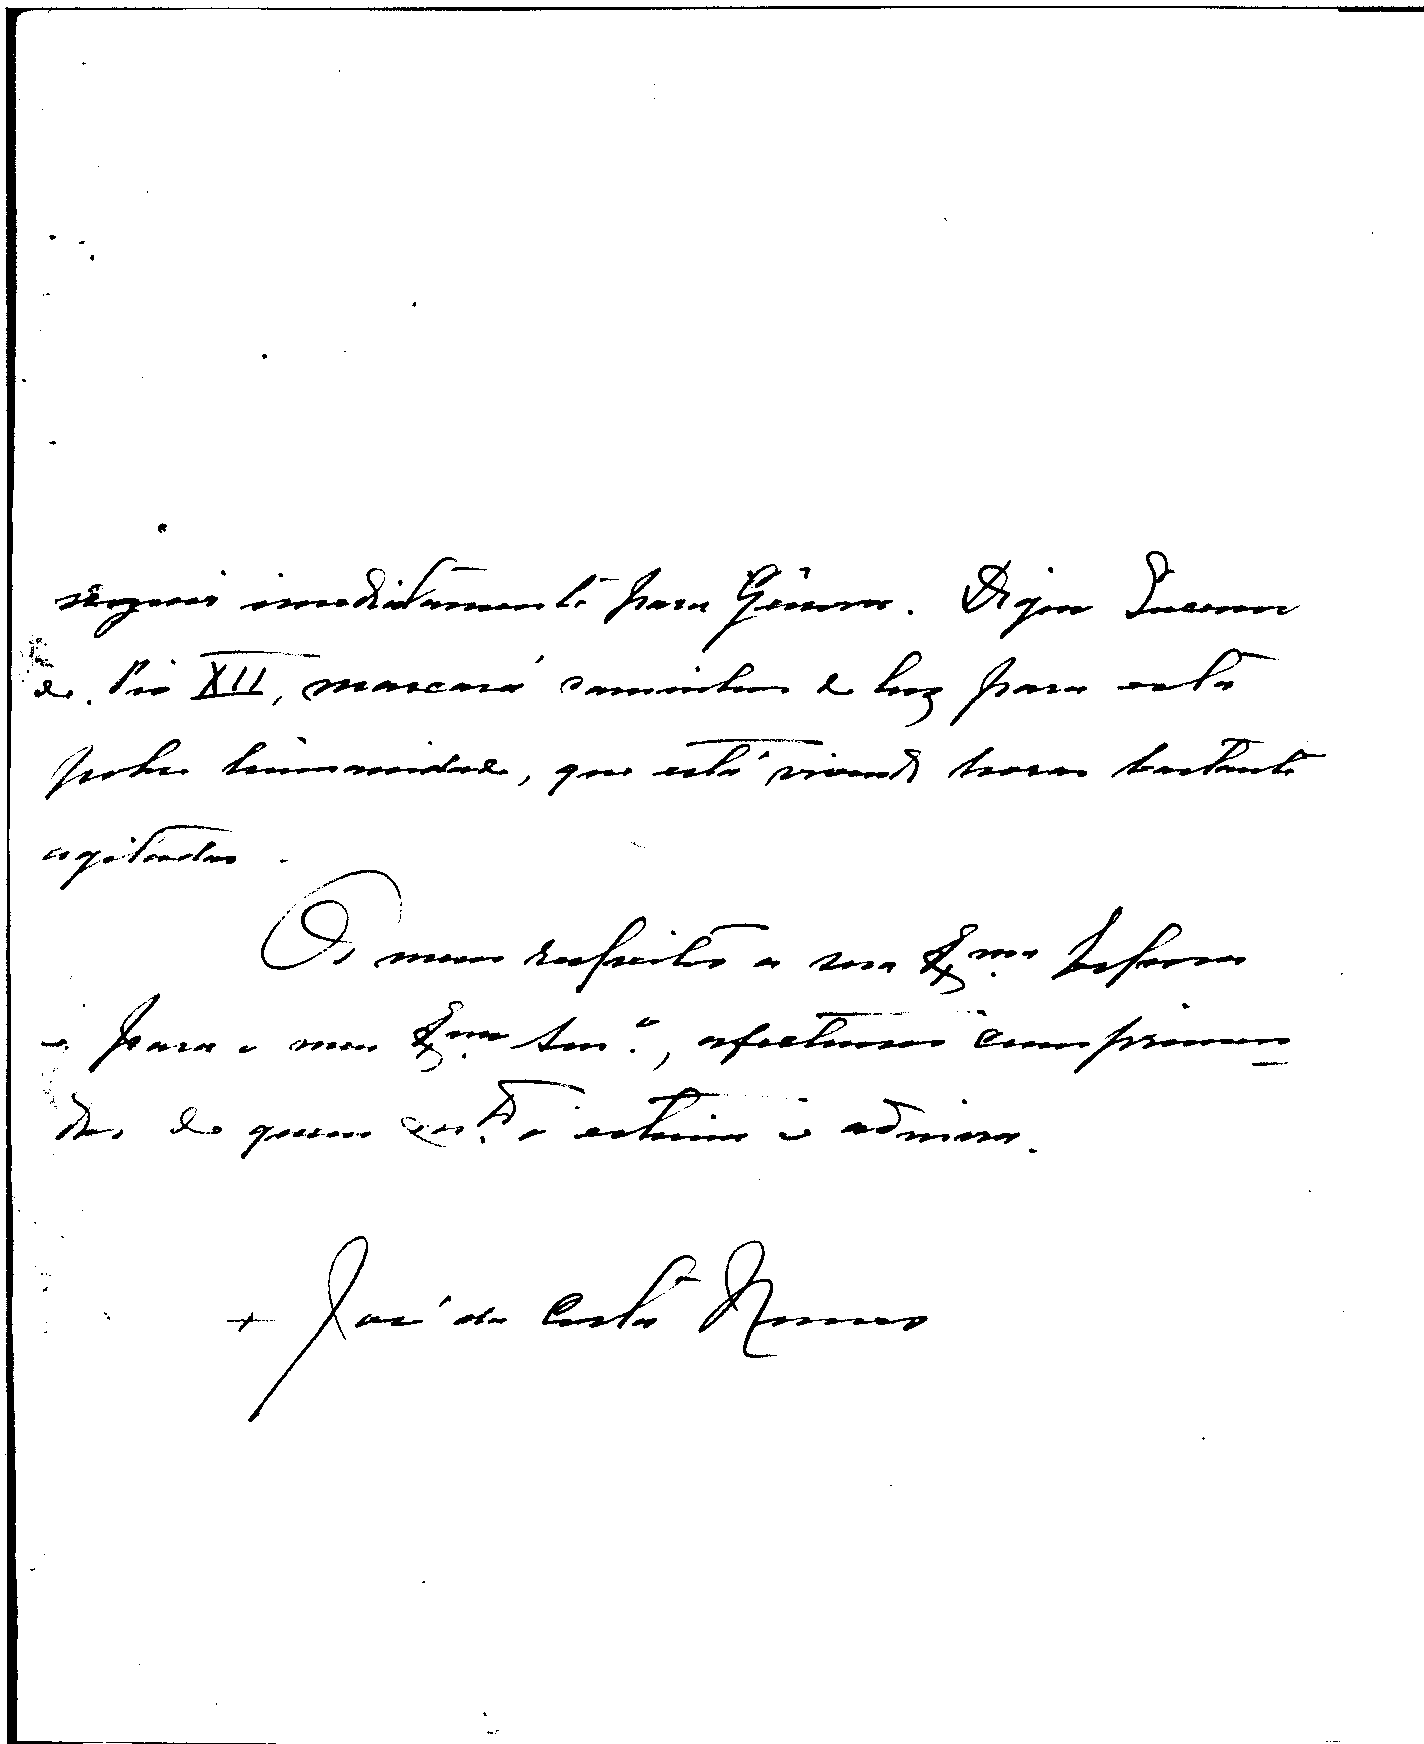 seguir imediatamente para Génova. Digno Sucessor
de Pio XII, marcará caminhos de luz para esta
pobre humanidade, que está vivendo horas bastante
agitadas.
Os meus respeitos a sua Exma Esposa
e para o meu Exmo Am.o, afectuosos cumprimen
tos de quem mto o estima e admira.
+ José da Costa Nunes